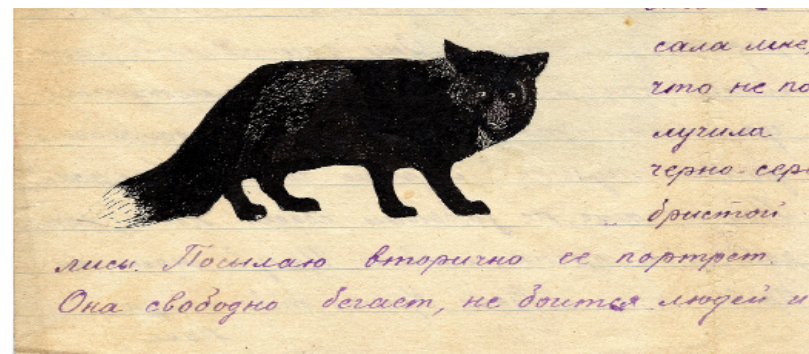 сала мне,
что не по
лучила
черно-сере
бристой
лисы. Посылаю вторично ее портрет.
Она свободно бегает, не боится людей и